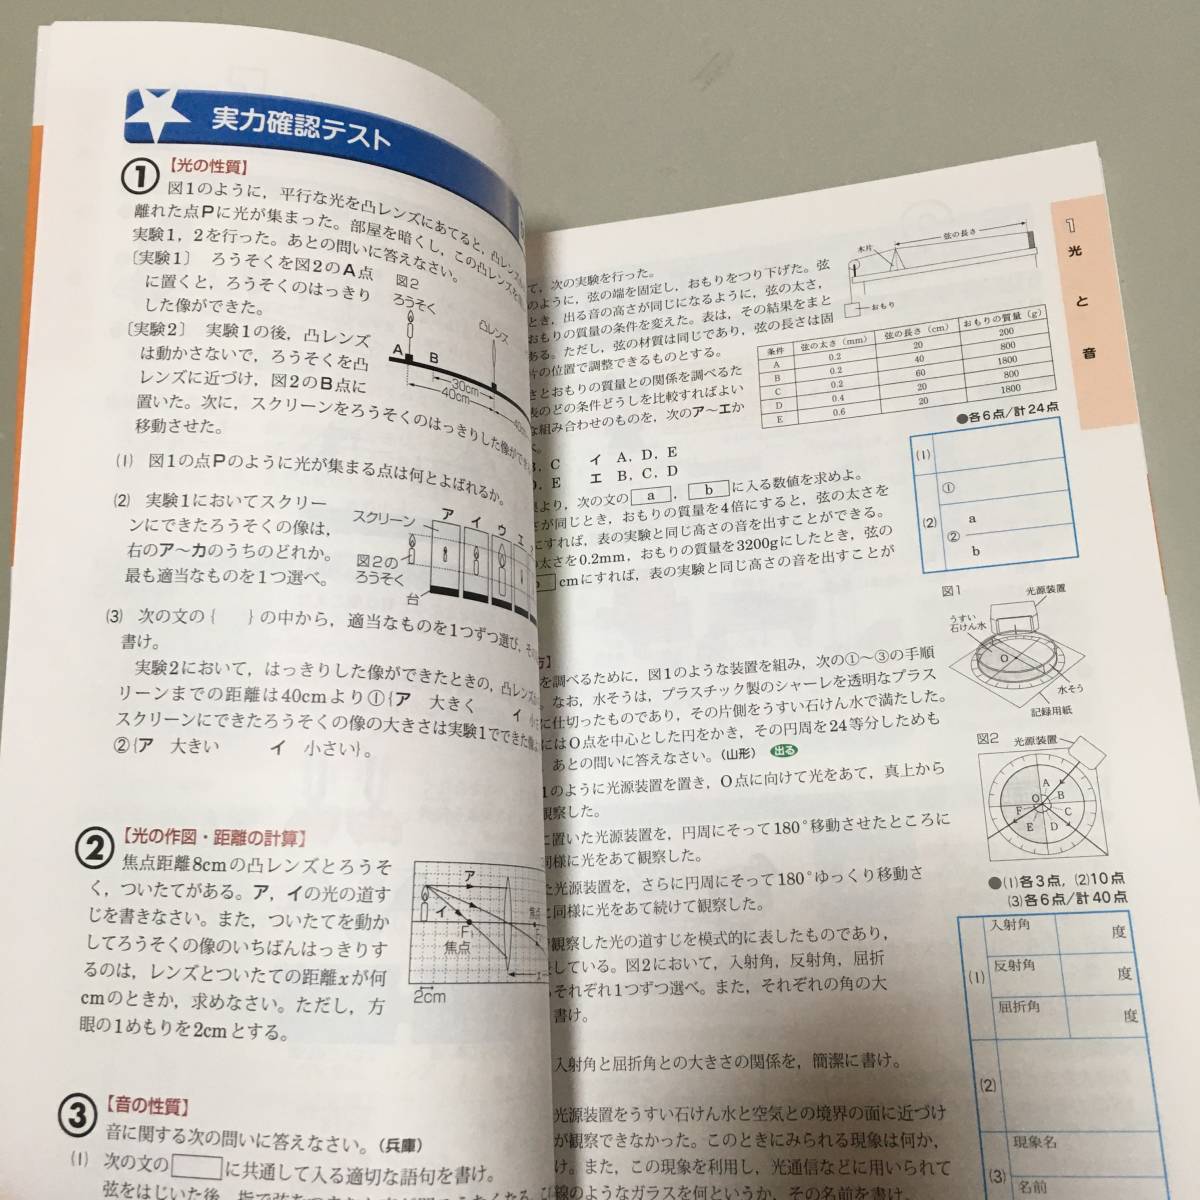 実力確認テスト
1 【光の性質】
図1のように，平行な光を凸レンズにあてると，凸レンズ
離れた点Pに光が集まった。部屋を暗くし，この凸レンズを
実験1，2を行った。あとの問いに答えなさい。
〔実験1〕 ろうそくを図2のA点
に置くと，ろうそくのはっきり
した像ができた。
〔実験2〕 実験1の後，凸レンズ
は動かさないで，ろうそくを凸
レンズに近づけ，図2のB点に
置いた。次に，スクリーンをろうそくのはっきりした像ができ
移動させた。
図2
ろうそく
凸レンズ
A
B
30cm
40cm
(1) 図1の点Pのように光が集まる点は何とよばれるか。
(2) 実験1においてスクリー
ンにできたろうそくの像は，
右のア〜カのうちのどれか。
最も適当なものを1つ選べ。
スクリーン
ア イ ウ エ
図2の
ろうそく
台
(3) 次の文の{ }の中から，適当なものを1つずつ選び，そ
書け。
実験2において，はっきりした像ができたときの，凸レンズ
リーンまでの距離は40cmより①{ア 大きく イ
スクリーンにできたろうそくの像の大きさは実験1でできた像
②{ア 大きい イ 小さい}。
2 【光の作図・距離の計算】
焦点距離8cmの凸レンズとろうそ
く，ついたてがある。ア，イの光の道す
じを書きなさい。また，ついたてを動か
してろうそくの像のいちばんはっきりす
るのは，レンズとついたての距離xが何
cmのときか，求めなさい。ただし，方
眼の1めもりを2cmとする。
ア
イ
F
焦点
2cm
3 【音の性質】
音に関する次の問いに答えなさい。（兵庫）
(1) 次の文の に共通して入る適切な語句を書け。
1 光と音
て，次の実験を行った。
のように，弦の端を固定し，おもりをつり下げた。弦
とき，出る音の高さが同じになるように，弦の太さ，
おもりの質量の条件を変えた。表は，その結果をまと
ある。ただし，弦の材質は同じであり，弦の長さは固
片の位置で調整できるものとする。
さとおもりの質量との関係を調べるた
表のどの条件どうしを比較すればよい
な組み合わせのものを，次のア〜エか
木片
弦の長さ
おもり
条件 弦の太さ(mm) 弦の長さ(cm) おもりの質量(g)
A 0.2 20 200
B 0.2 40 800
C 0.2 60 1800
D 0.4 20 800
E 0.6 20 1800
B，C イ A，D，E
D，E エ B，C，D
果より，次の文の a ， b に入る数値を求めよ。
さが同じとき，おもりの質量を4倍にすると，弦の太さを
にすれば，表の実験と同じ高さの音を出すことができる。
の太さを0.2mm，おもりの質量を3200gにしたとき，弦の
b cmにすれば，表の実験と同じ高さの音を出すことが
●各6点／計24点
(1)
(2)
①
②
a
b
方】
を調べるために，図1のような装置を組み，次の①〜③の手順
なお，水そうは，プラスチック製のシャーレを透明なプラス
に仕切ったものであり，その片側をうすい石けん水で満たした。
にはO点を中心とした円をかき，その円周を24等分しためも
あとの問いに答えなさい。（山形） 出る
1のように光源装置を置き，O点に向けて光をあて，真上から
観察した。
に置いた光源装置を，円周にそって180°移動させたところに
同様に光をあて観察した。
た光源装置を，さらに円周にそって180°ゆっくり移動さ
に同様に光をあて続けて観察した。
図1
光源装置
うすい
石けん水
O
水そう
記録用紙
図2
光源装置
A
B
C
D
E
F
O
●(1)各3点，(2)10点
(3)各6点／計40点
で観察した光の道すじを模式的に表したものであり，
している。図2において，入射角，反射角，屈折
それぞれ1つずつ選べ。また，それぞれの角の大
書け。
入射角と屈折角との大きさの関係を，簡潔に書け。
光源装置をうすい石けん水と空気との境界の面に近づけ
が観察できなかった。このときにみられる現象は何か，
け。また，この現象を利用し，光通信などに用いられて
線のようなガラスを何というか，その名前を書け。
(1)
入射角 度
反射角 度
屈折角 度
(2)
(3)
現象名
名前